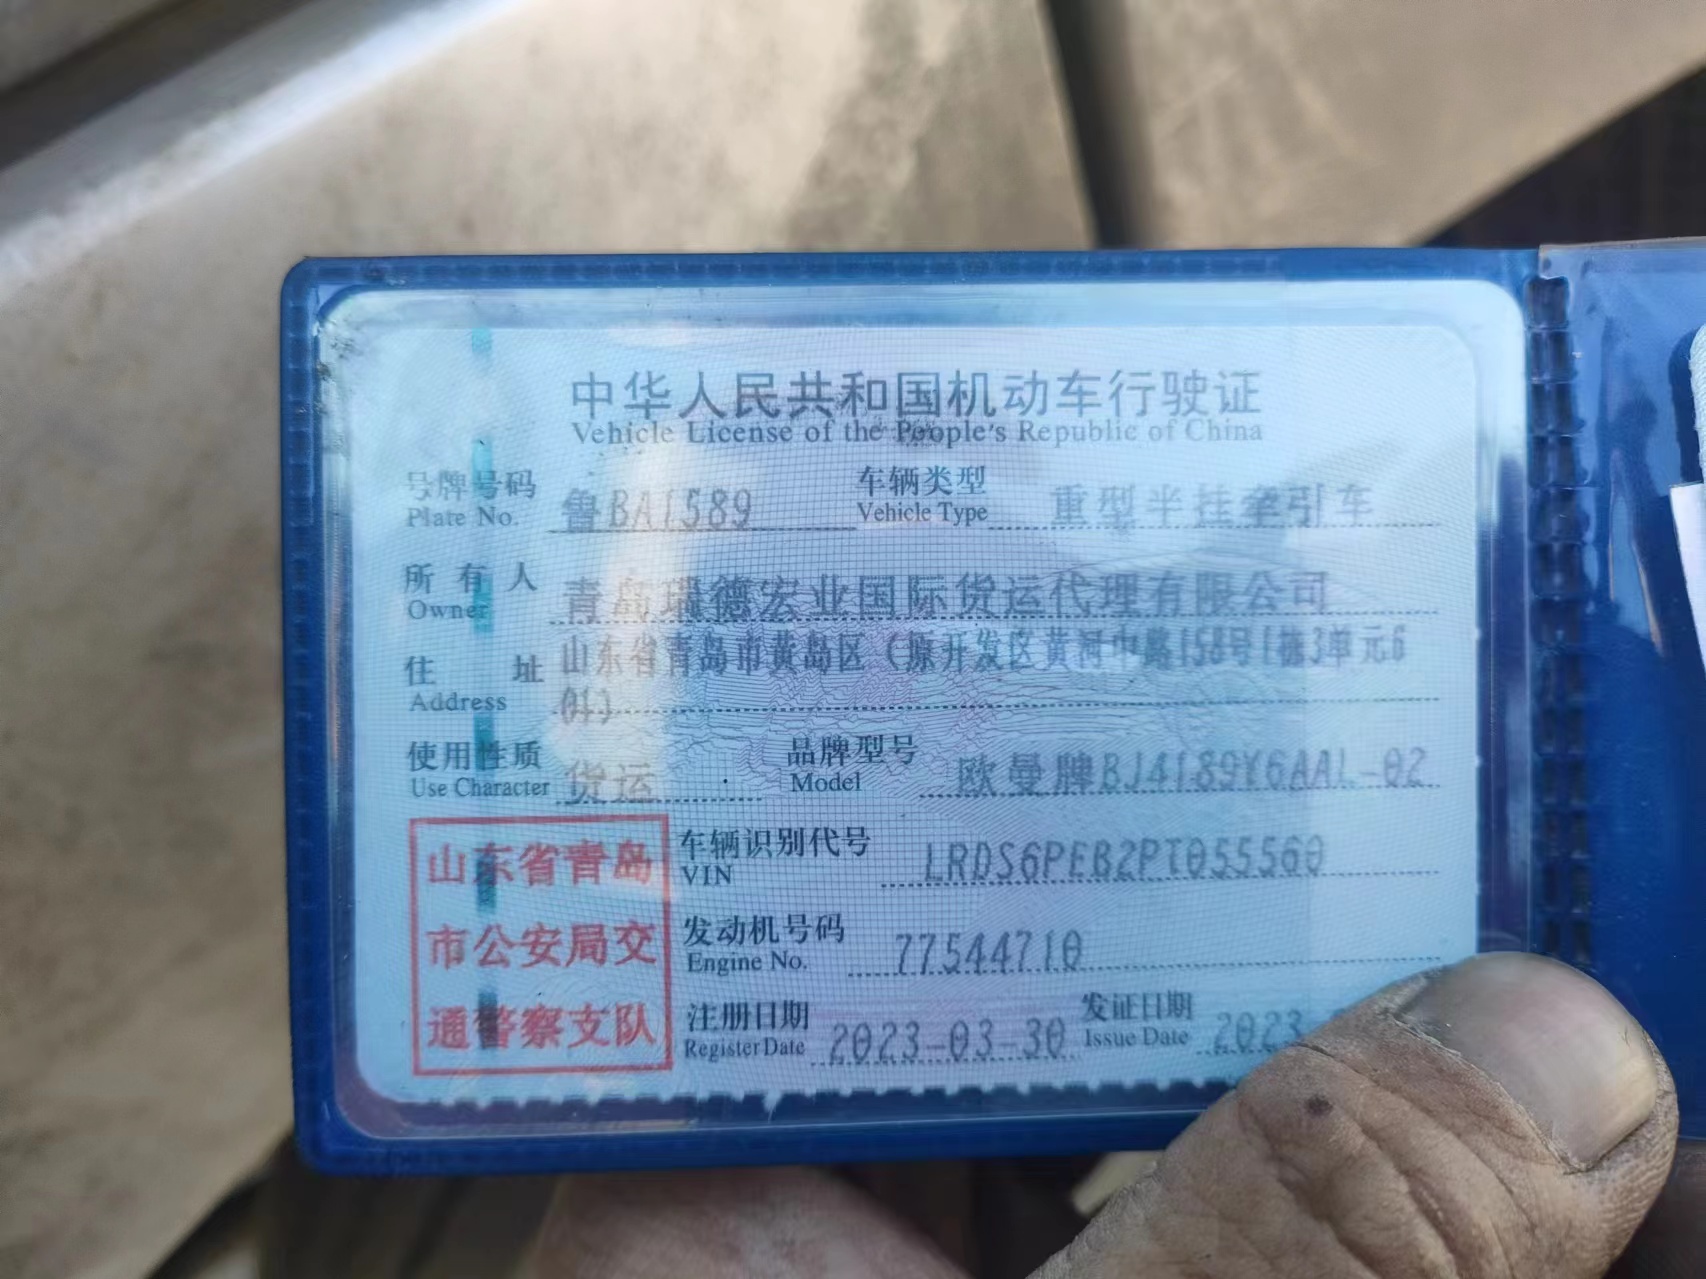 中华人民共和国机动车行驶证
Vehicle License of the People's Republic of China
号牌号码 鲁BA1589 车辆类型 重型半挂牵引车
Plate No. Vehicle Type
所有人 青岛瑞德宏业国际货运代理有限公司
Owner
住址 山东省青岛市黄岛区（原开发区黄河中路158号1栋3单元6
Address 01）
使用性质 货运 品牌型号 欧曼牌BJ4189Y6AAL-02
Use Character Model
山东省青岛
市公安局交
通警察支队
车辆识别代号 LRDS6PEB2PT055560
VIN
发动机号码 77544710
Engine No.
注册日期 2023-03-30 发证日期 2023-
Register Date Issue Date